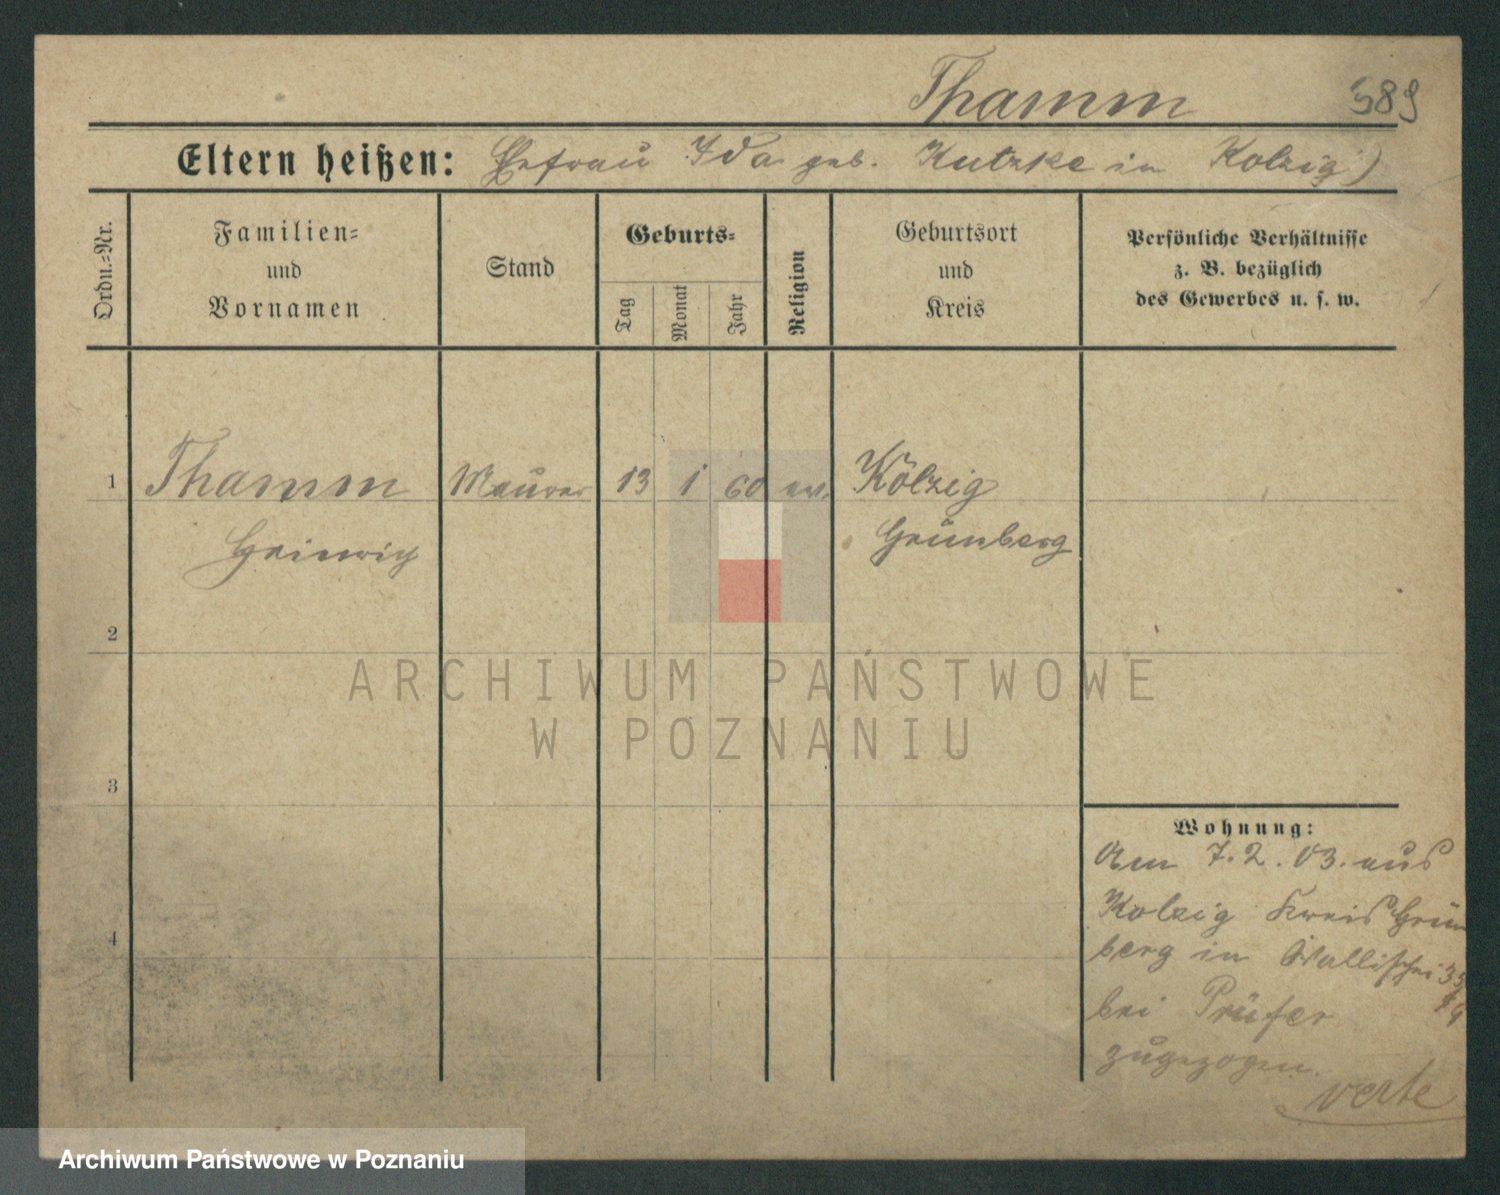 Thamm 389
Eltern heißen: Ehefrau Ida geb. Kutzke in Kolzig)
Ordn.=Nr.
Familien=
und
Vornamen
Stand
Geburts=
Tag
Monat
Jahr
Religion
Geburtsort
und
Kreis
Persönliche Verhältnisse
z. B. bezüglich
des Gewerbes u. s. w.
1 Thamm Maurer 13 1 60 ev. Kölzig
Heinrich Grünberg
2
3
4
Wohnung:
Am 7. 2. 03. aus
Kolzig Kreis Grün
berg in Wallischei
bei Prüfer
zugezogen.
verte
ARCHIWUM PAŃSTWOWE
W POZNANIU
Archiwum Państwowe w Poznaniu